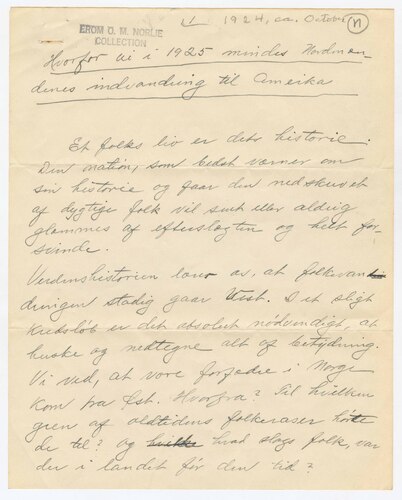 1924, ca. October
N
FROM O. M. NORLIE
COLLECTION
Hvorfor vi i 1925 mindes Nordmæn-
denes indvandring til Amerika
Et folks liv er dets historie.
Den nation, som bedst værner om
sin historie og gaar den nedskrevet
af dygtige folk vil sent eller aldrig
glemmes af efterslegten og helt for-
svinde.
Verdenshistorien lærer os, at folkevan-
dringen stadig gaar Vest. I et sligt
kredsløb er det absolut nødvendigt, at
huske og nedtegne alt af betydning.
Vi ved, at vore forfedre i Norge
kom fra Øst. Hvorfra? Til hvilken
gren af oldtidens folkeraser hørte
de til? og hvad slags folk, var
der i landet før den tid?